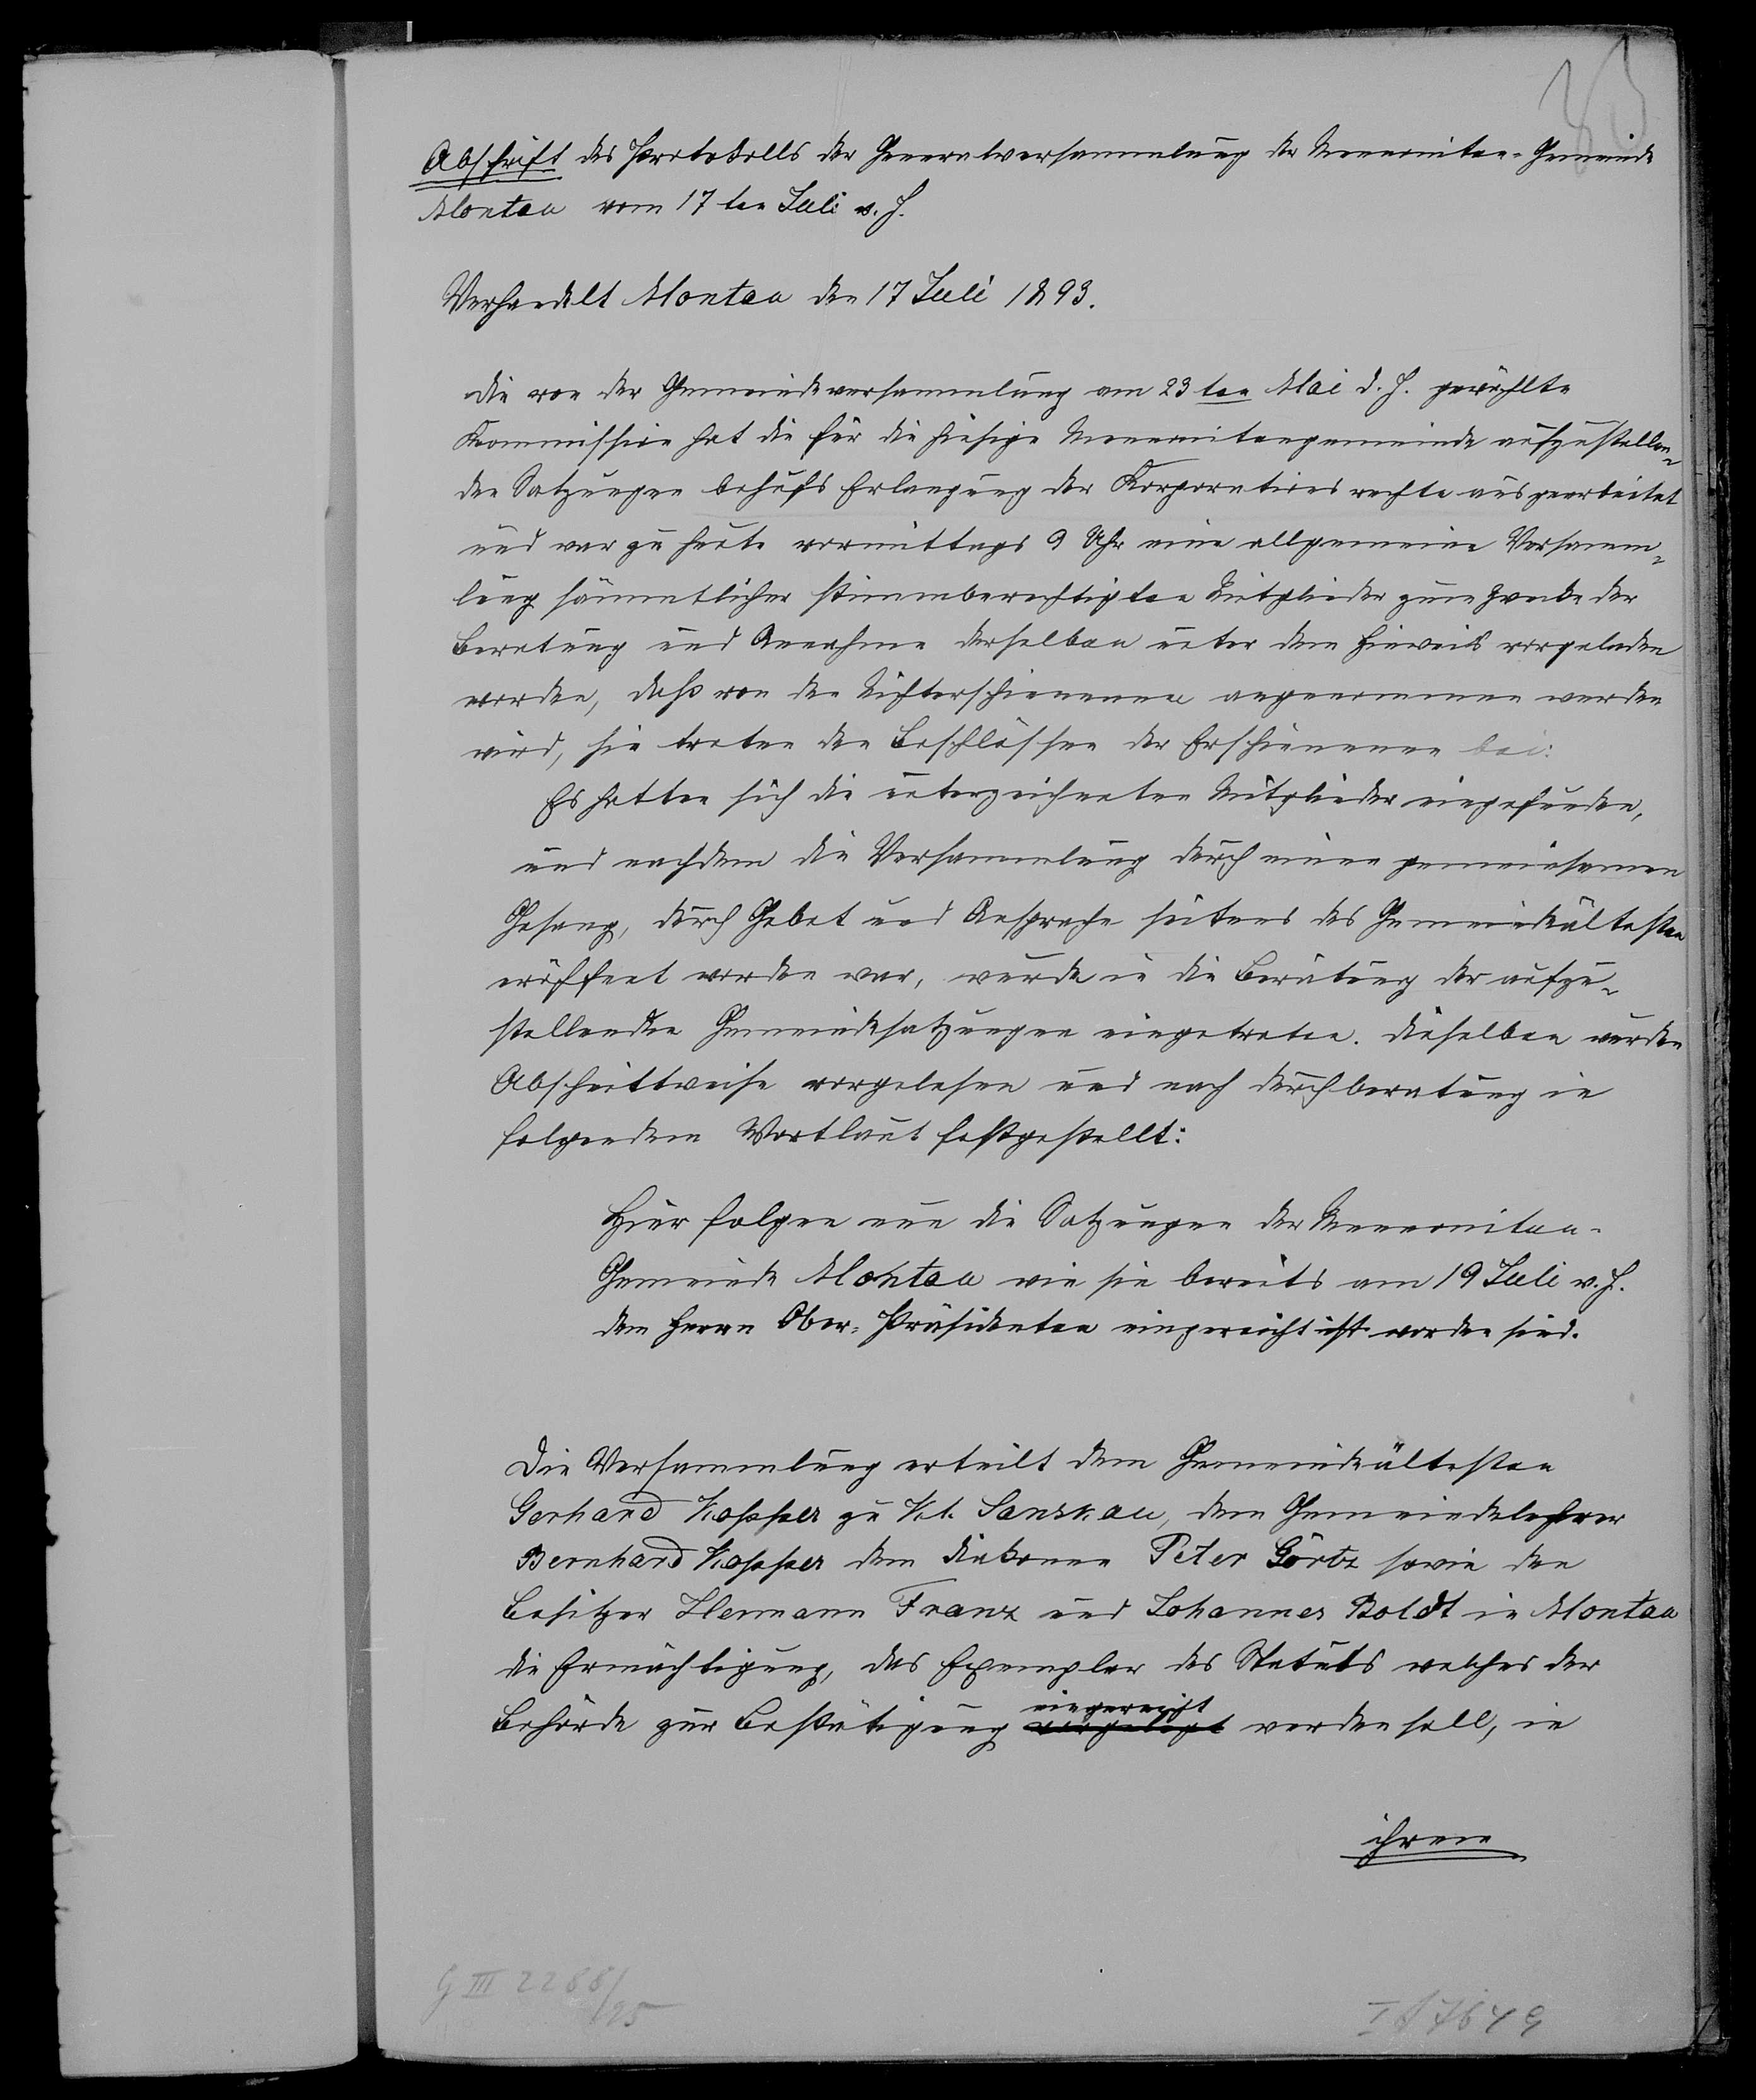 Abschrift des Protokolls der Generalversammlung der Mennoniten-Gemeinde
Montau vom 17 ten Juli v. J.
Verhandelt Montau den 17 Juli 1893.
Die von der Gemeindeversammlung am 23 ten Mai d. J. gewählte
Kommission hat die für die hiesige Mennonitengemeinde aufzustellen-
den Satzungen behufs Erlangung der Korporationsrechte ausgearbeitet
und war zu heute vormittags 9 Uhr eine allgemeine Versamm-
lung sämmtlicher stimmberechtigten Mitglieder zum Zwecke der
Beratung und Annahme derselben unter dem Hinweis vorgeladen
worden, daß von den Nichterschienenen angenommen werden
wird, sie treten den Beschlüssen der Erschienenen bei:
Es hatten sich die unterzeichneten Mitglieder eingefunden,
und nachdem die Versammlung durch einen gemeinsamen
Gesang, durch Gebet und Ansprache seitens des Gemeindeältesten
eröffnet worden war, wurde in die Beratung der aufzu-
stellenden Gemeindesatzungen eingetreten. Dieselben wurden
Abschnittweise vorgelesen und nach Durchberatung in
folgendem Wortlaut festgestellt:
Hier folgen nun die Satzungen der Mennoniten-
Gemeinde Montau wie sie bereits am 19 Juli v. J.
dem Herrn Ober-Präsidenten eingereicht ist worden sind.
Die Versammlung erteilt dem Gemeindeältesten
Gerhard Kopper zu Kl. Sanskau, dem Gemeindelehrer
Bernhard Kopper dem Diakonen Peter Görtz sowie den
Besitzer Hermann Franz und Johannes Boldt in Montau
die Ermächtigung, das Exemplar des Statuts welches der
eingereicht
Behörde zur Bestätigung vorgelegt werden soll, in
ihrem
G III 2288/95